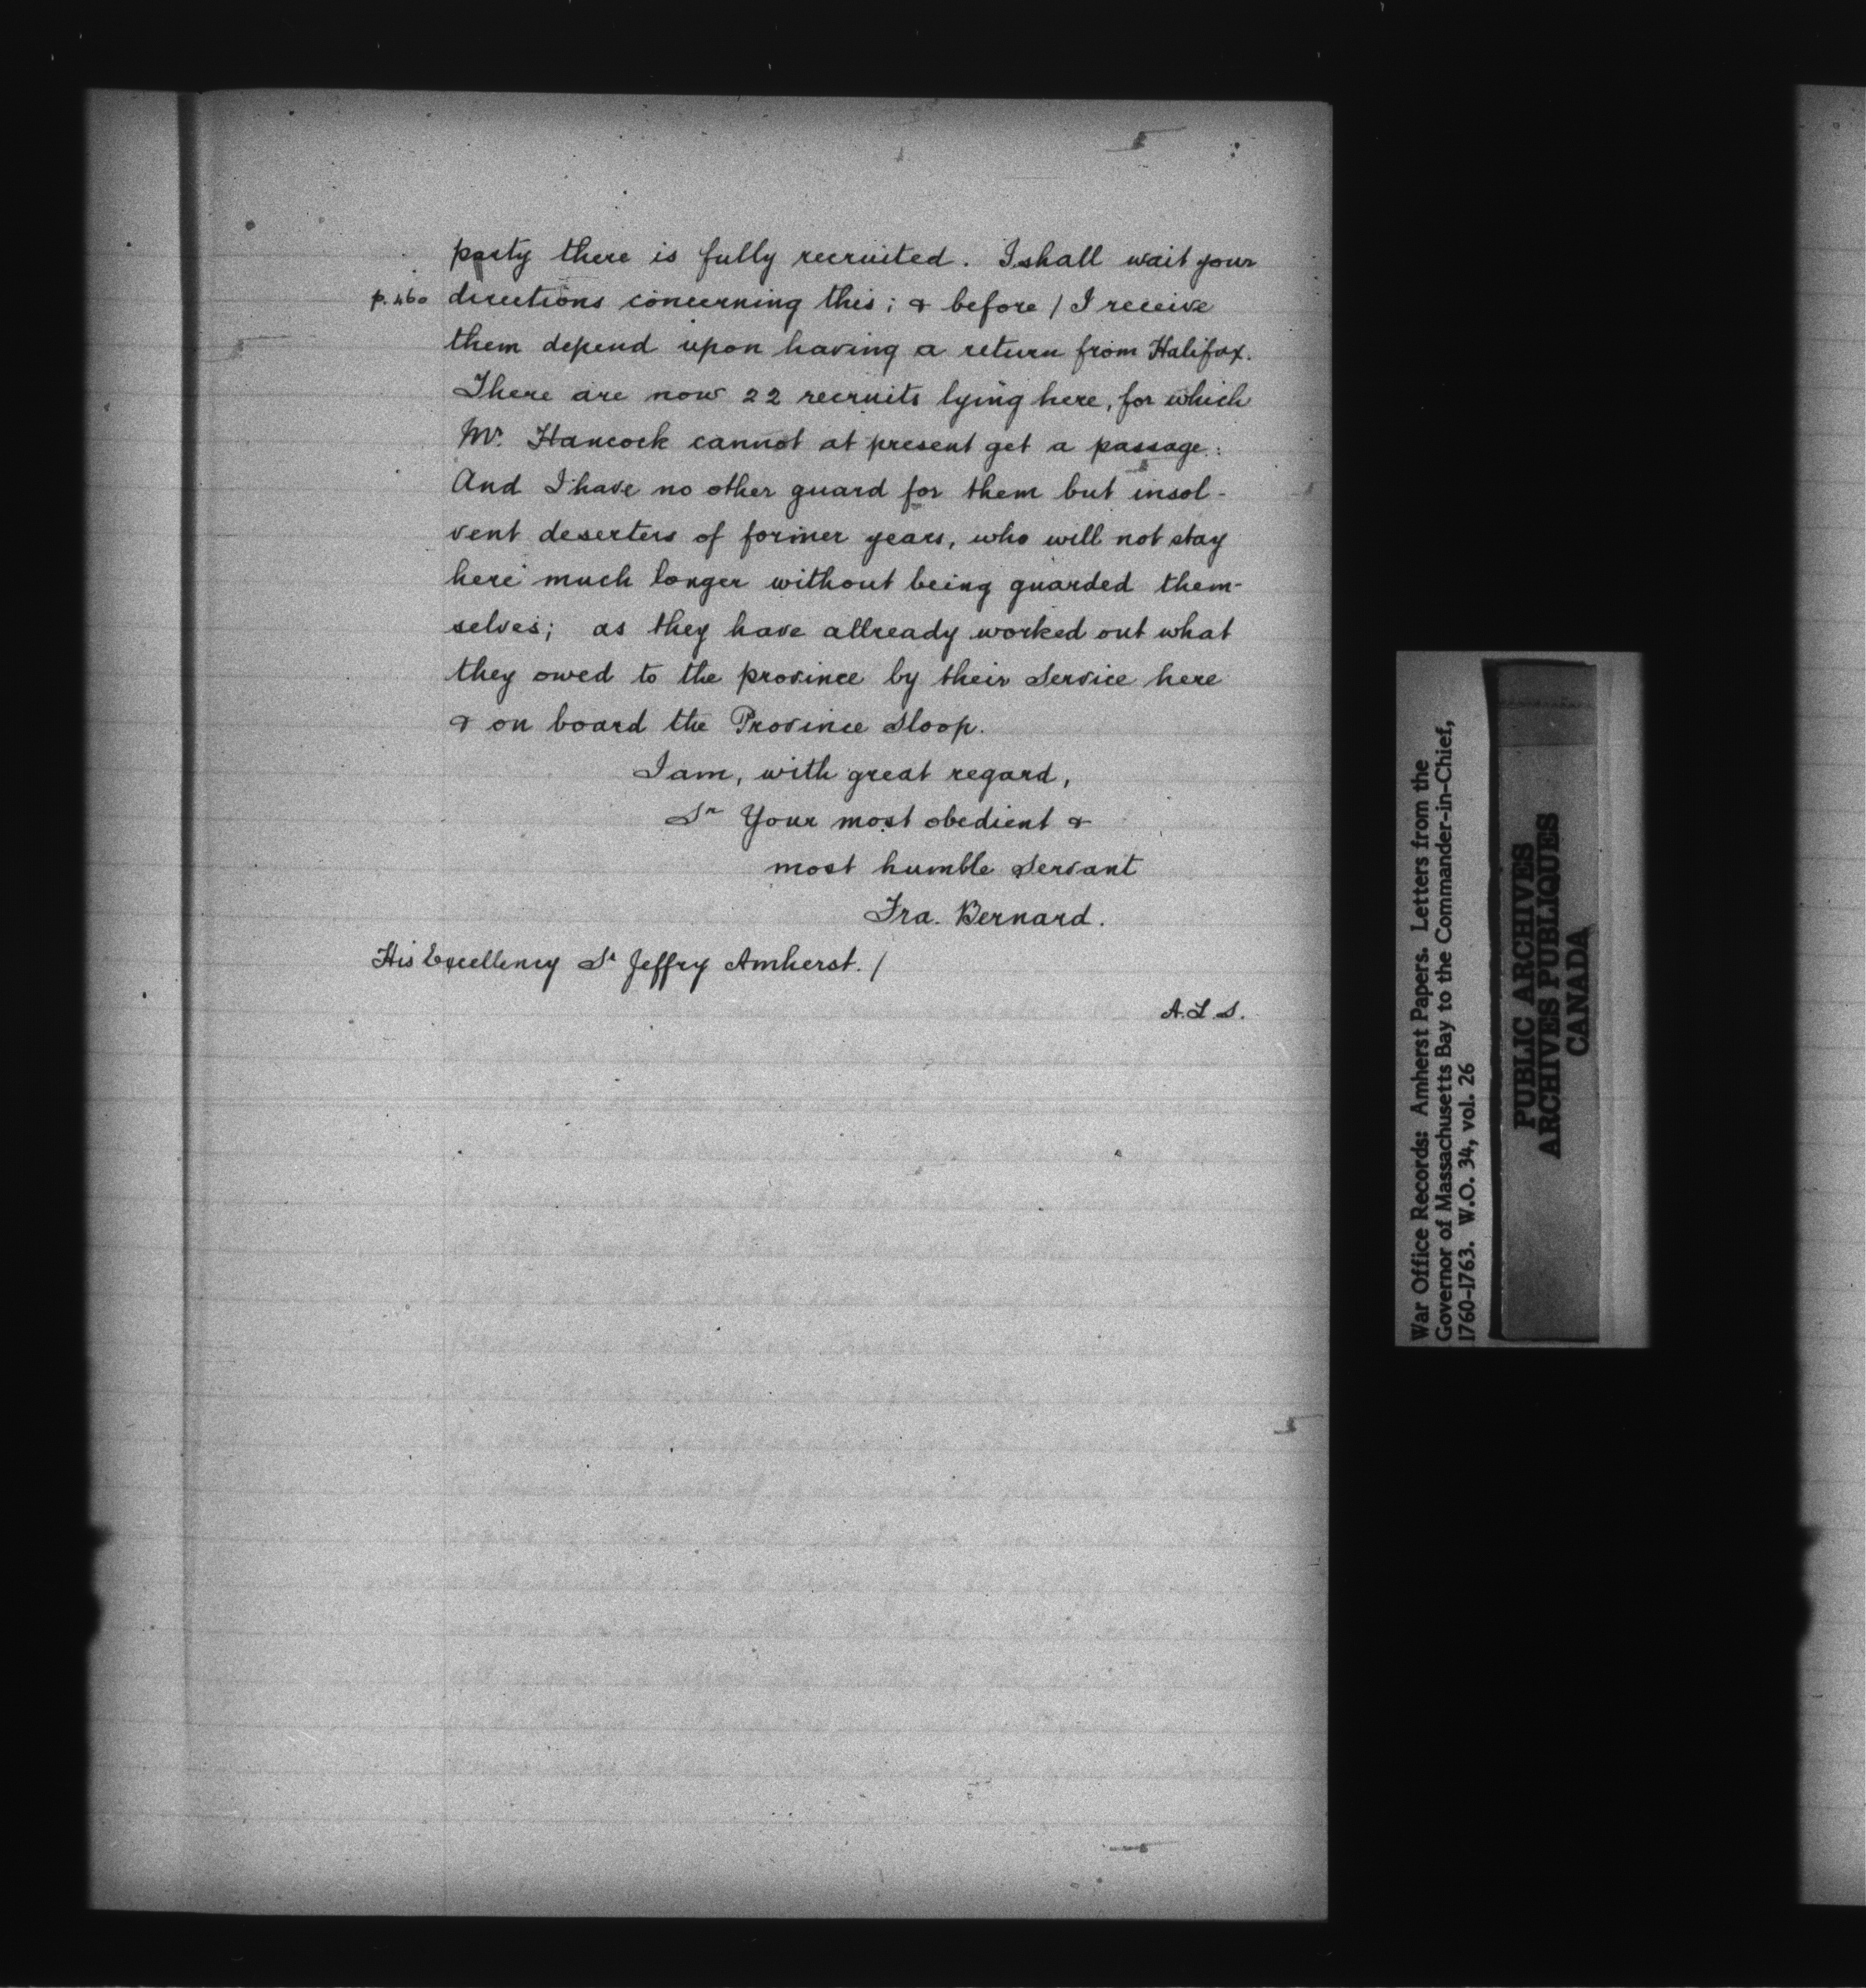 party there is fully recruited. I shall wait your
p. 460 directions concerning this; & before / I receive
them depend upon having a return from Halifax.
There are now 22 recruits lying here, for which
Mr. Hancock cannot at present get a passage:
And I have no other guard for them but insol-
vent deserters of former years, who will not stay
here much longer without being guarded them-
selves; as they have allready worked out what
they owed to the province by their Service here
& on board the Province Sloop.
I am, with great regard,
Sr Your most obedient &
most humble Servant
Fra. Bernard.
His Excellency Sr Jeffry Amherst. /
A.L.S.
War Office Records: Amherst Papers. Letters from the
Governor of Massachusetts Bay to the Commander-in-Chief,
1760-1763. W.O. 34, vol. 26
PUBLIC ARCHIVES
ARCHIVES PUBLIQUES
CANADA